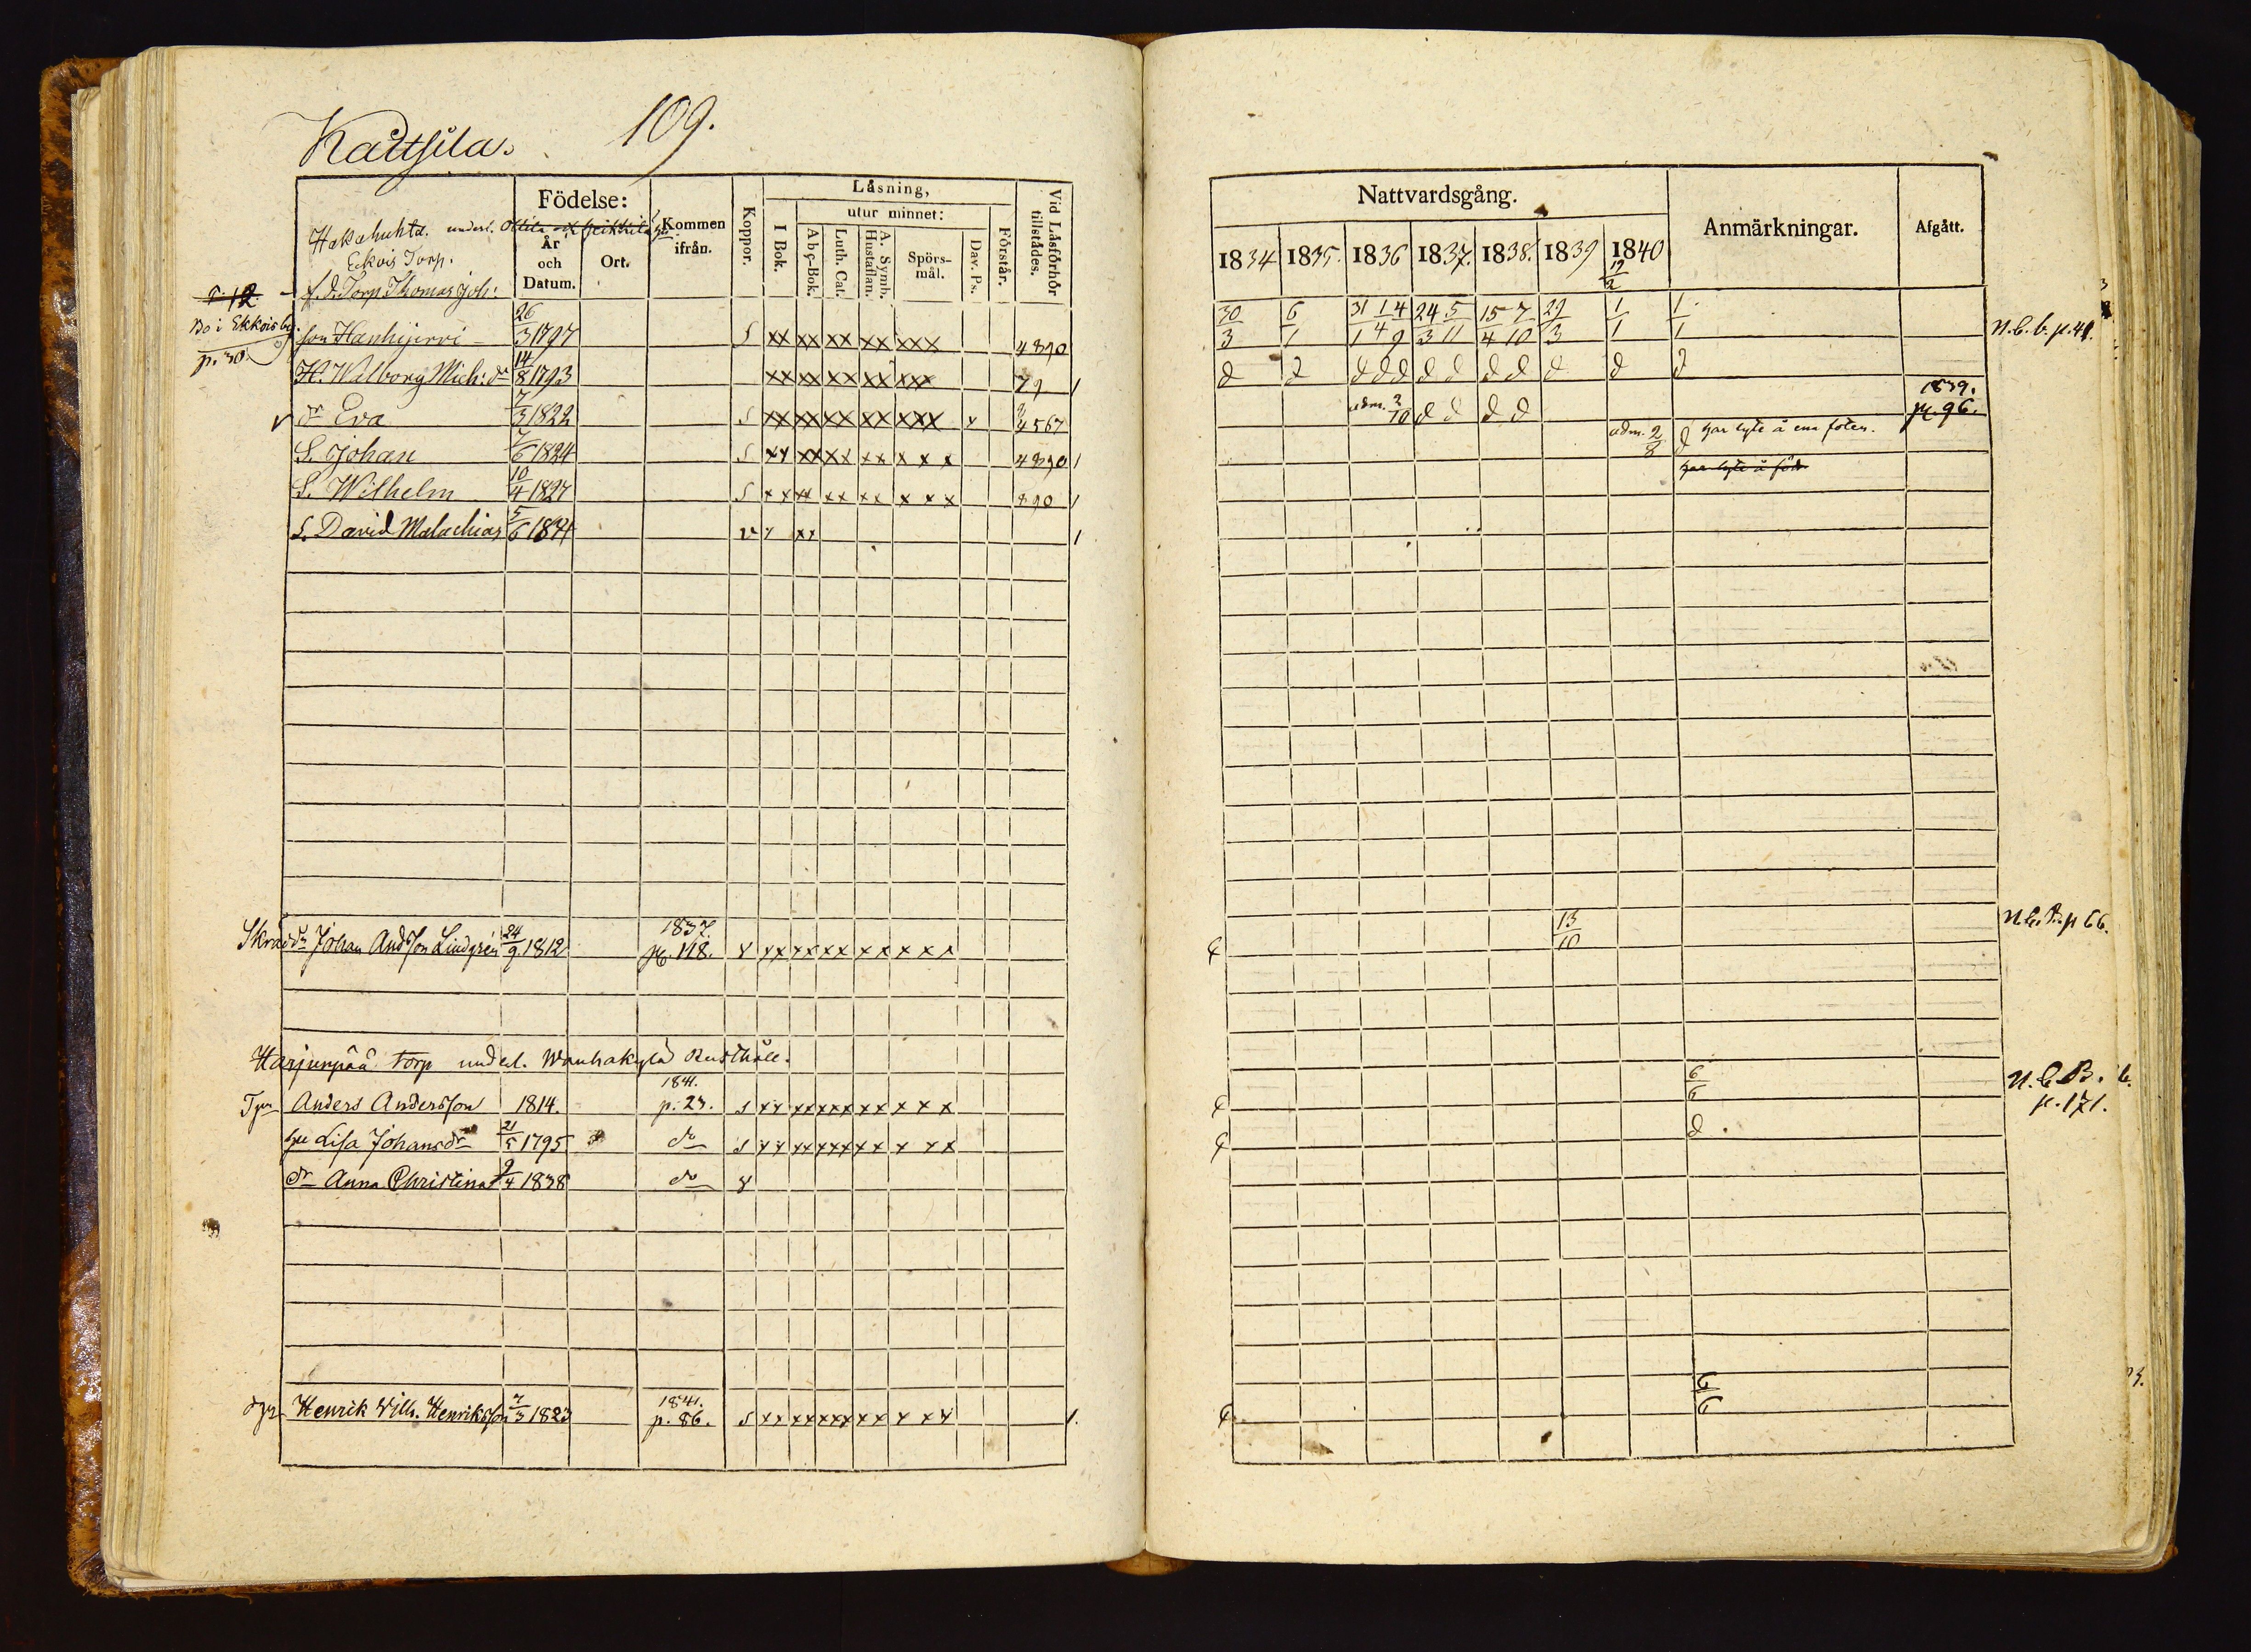 Kattsila. 109.
Födelse:
År och Datum.
Ort.
Kommen ifrån.
Koppor.
Läsning,
I Bok.
utur minnet:
Abç-Bok.
Luth. Cat.
A. Symb. Hustaflan.
Spörs-mål.
Dav. Ps.
Förstår.
Vid Läsförhör tillstädes.
Nattvardsgång.
1834 1835. 1836 1837. 1838. 1839 1840
Anmärkningar.
Afgått.
Hakahuhta. underl.
Eckois Torp.
p. 12.
f. d. Torp. Thomas Joh:
Bo i Ekkois by. p. 30
son Hanhijervi 26/3 1797 S xx xx xx xx xxx 4890 30/3 6/1 31/1 1/4 4/9 24/3 5/11 15/4 7/10 29/3 1/1 1/1 N.C.b. p. 41.
H. Walborg Mich: dr 14/8 1793 xx xx xx xx xxx 79 1
dr Eva 7/3 1822 S xx xx xx xx xxx v 4567 adm. 2/10 1839. p. 96.
S. Johan 7/6 1824 S xx xx xx xx x x x 4890 1 adm. 2/8 har lyte å ena foten.
S. Wilhelm 10/4 1827 S xx xx xx xx x x x 890 1 har lyte å
S. David Malachias 5/6 1831 v x xx 1
Skrädd: Johan Andsson Lindgrén 24/9 1812 1837. p. 118. xx xx xx xx x x x 13/10 N.C.B. p 66.
Harjunpää torp underl. Wanhakylä Rusthåll.
Tpr Anders Andersson 1814. 1841. p. 23. s xx xx xx xx x x x 6/6 N.C.B. b. p. 171.
hu Lisa Johansdr 21/5 1795 do s xx xx xx xx x x x d.
dr Anna Christina 9/4 1838 do
Henrik Wilh. Henriksson 7/3 1823 1841. p. 86. s xx xx xx xx x x x 1. 6/6